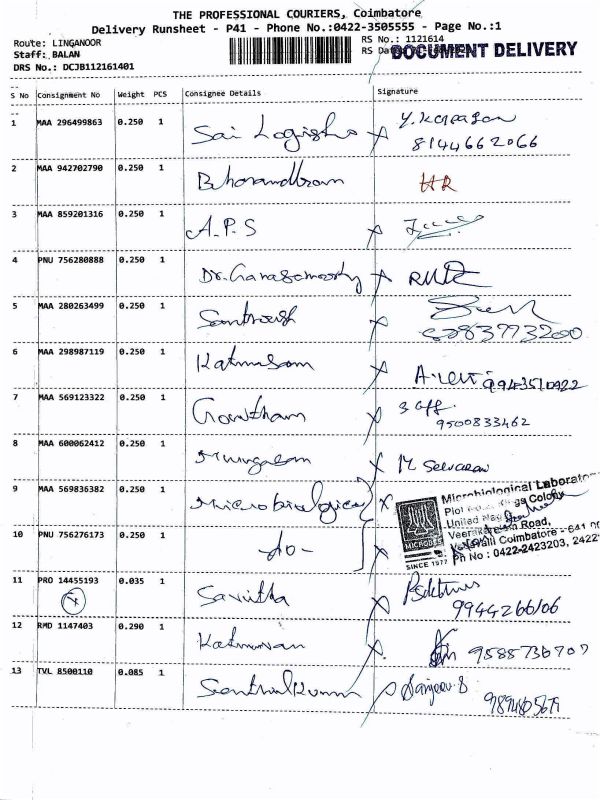 THE PROFESSIONAL COURIERS, Coimbatore
Delivery Runsheet - P41 - Phone No.:0422-3505555 - Page No.:1
Route: LINGANOOR RS No.: 1121614
Staff: BALAN RS Date DOCUMENT DELIVERY
DRS No.: DCJB112161401
S No Consignment No Weight PCS Consignee Details Signature
1 MAA 296499863 0.250 1 Sai
8144662066
2 MAA 942702790 0.250 1
3 MAA 859201316 0.250 1 A.P.S
4 PNU 756280888 0.250 1 Dr.
5 MAA 280263499 0.250 1 Santhosh
6 MAA 298987119 0.250 1
7 MAA 569123322 0.250 1 Gowtham
9500833462
8 MAA 600062412 0.250 1 Murugesan M
9 MAA 569836382 0.250 1 Microbiological
Microbiological Laboratory
Colony
United
Road,
Coimbatore - 641
Ph No : 0422-2423203, 2422
MICROBE
SINCE 1977
10 PNU 756276173 0.250 1 -do-
11 PRO 14455193 0.035 1 Savitha
9944266106
12 RMD 1147403 0.290 1 9585736707
13 TVL 8500110 0.085 1 Senthilkumar Sanjeev.S